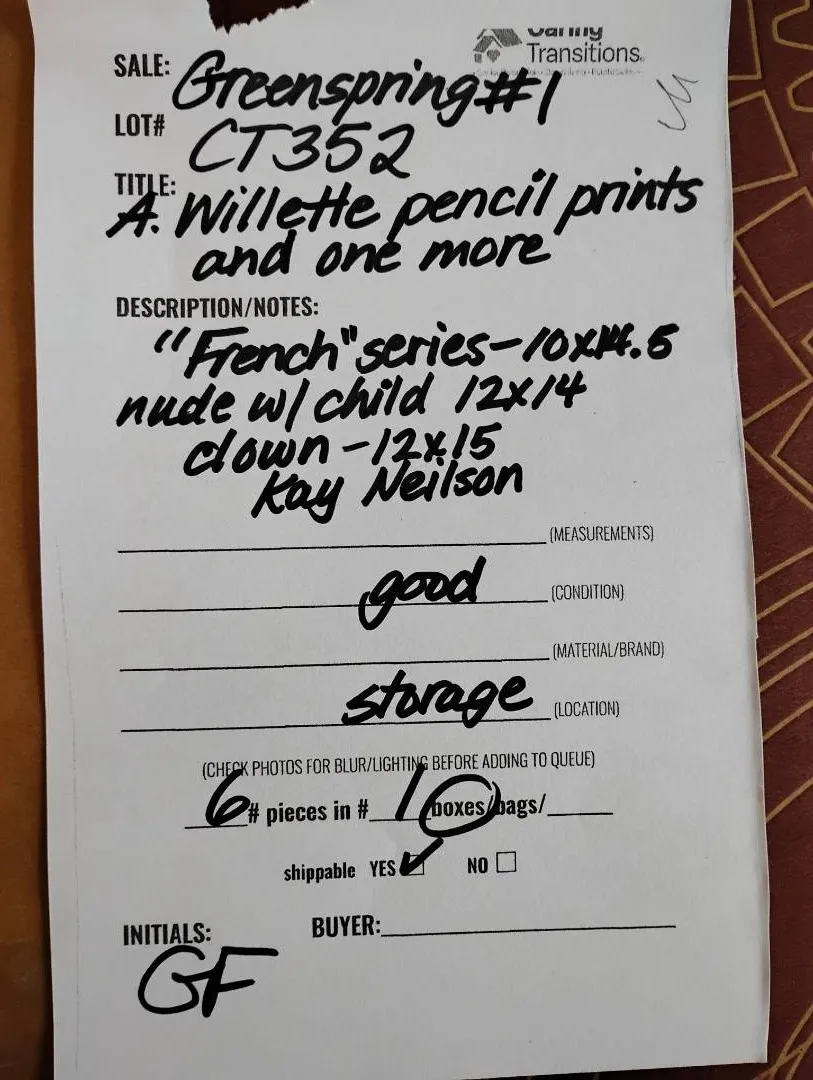 Caring
Transitions
SALE: Greenspring #1
LOT# CT352
TITLE:
A. Willette pencil prints
and one more
DESCRIPTION/NOTES:
"French" series-10x14.5
nude w/ child 12x14
clown-12x15
Kay Neilson
(MEASUREMENTS)
good (CONDITION)
(MATERIAL/BRAND)
storage (LOCATION)
(CHECK PHOTOS FOR BLUR/LIGHTING BEFORE ADDING TO QUEUE)
6 # pieces in # 1 boxes/bags/
shippable YES NO
INITIALS: BUYER:
GF